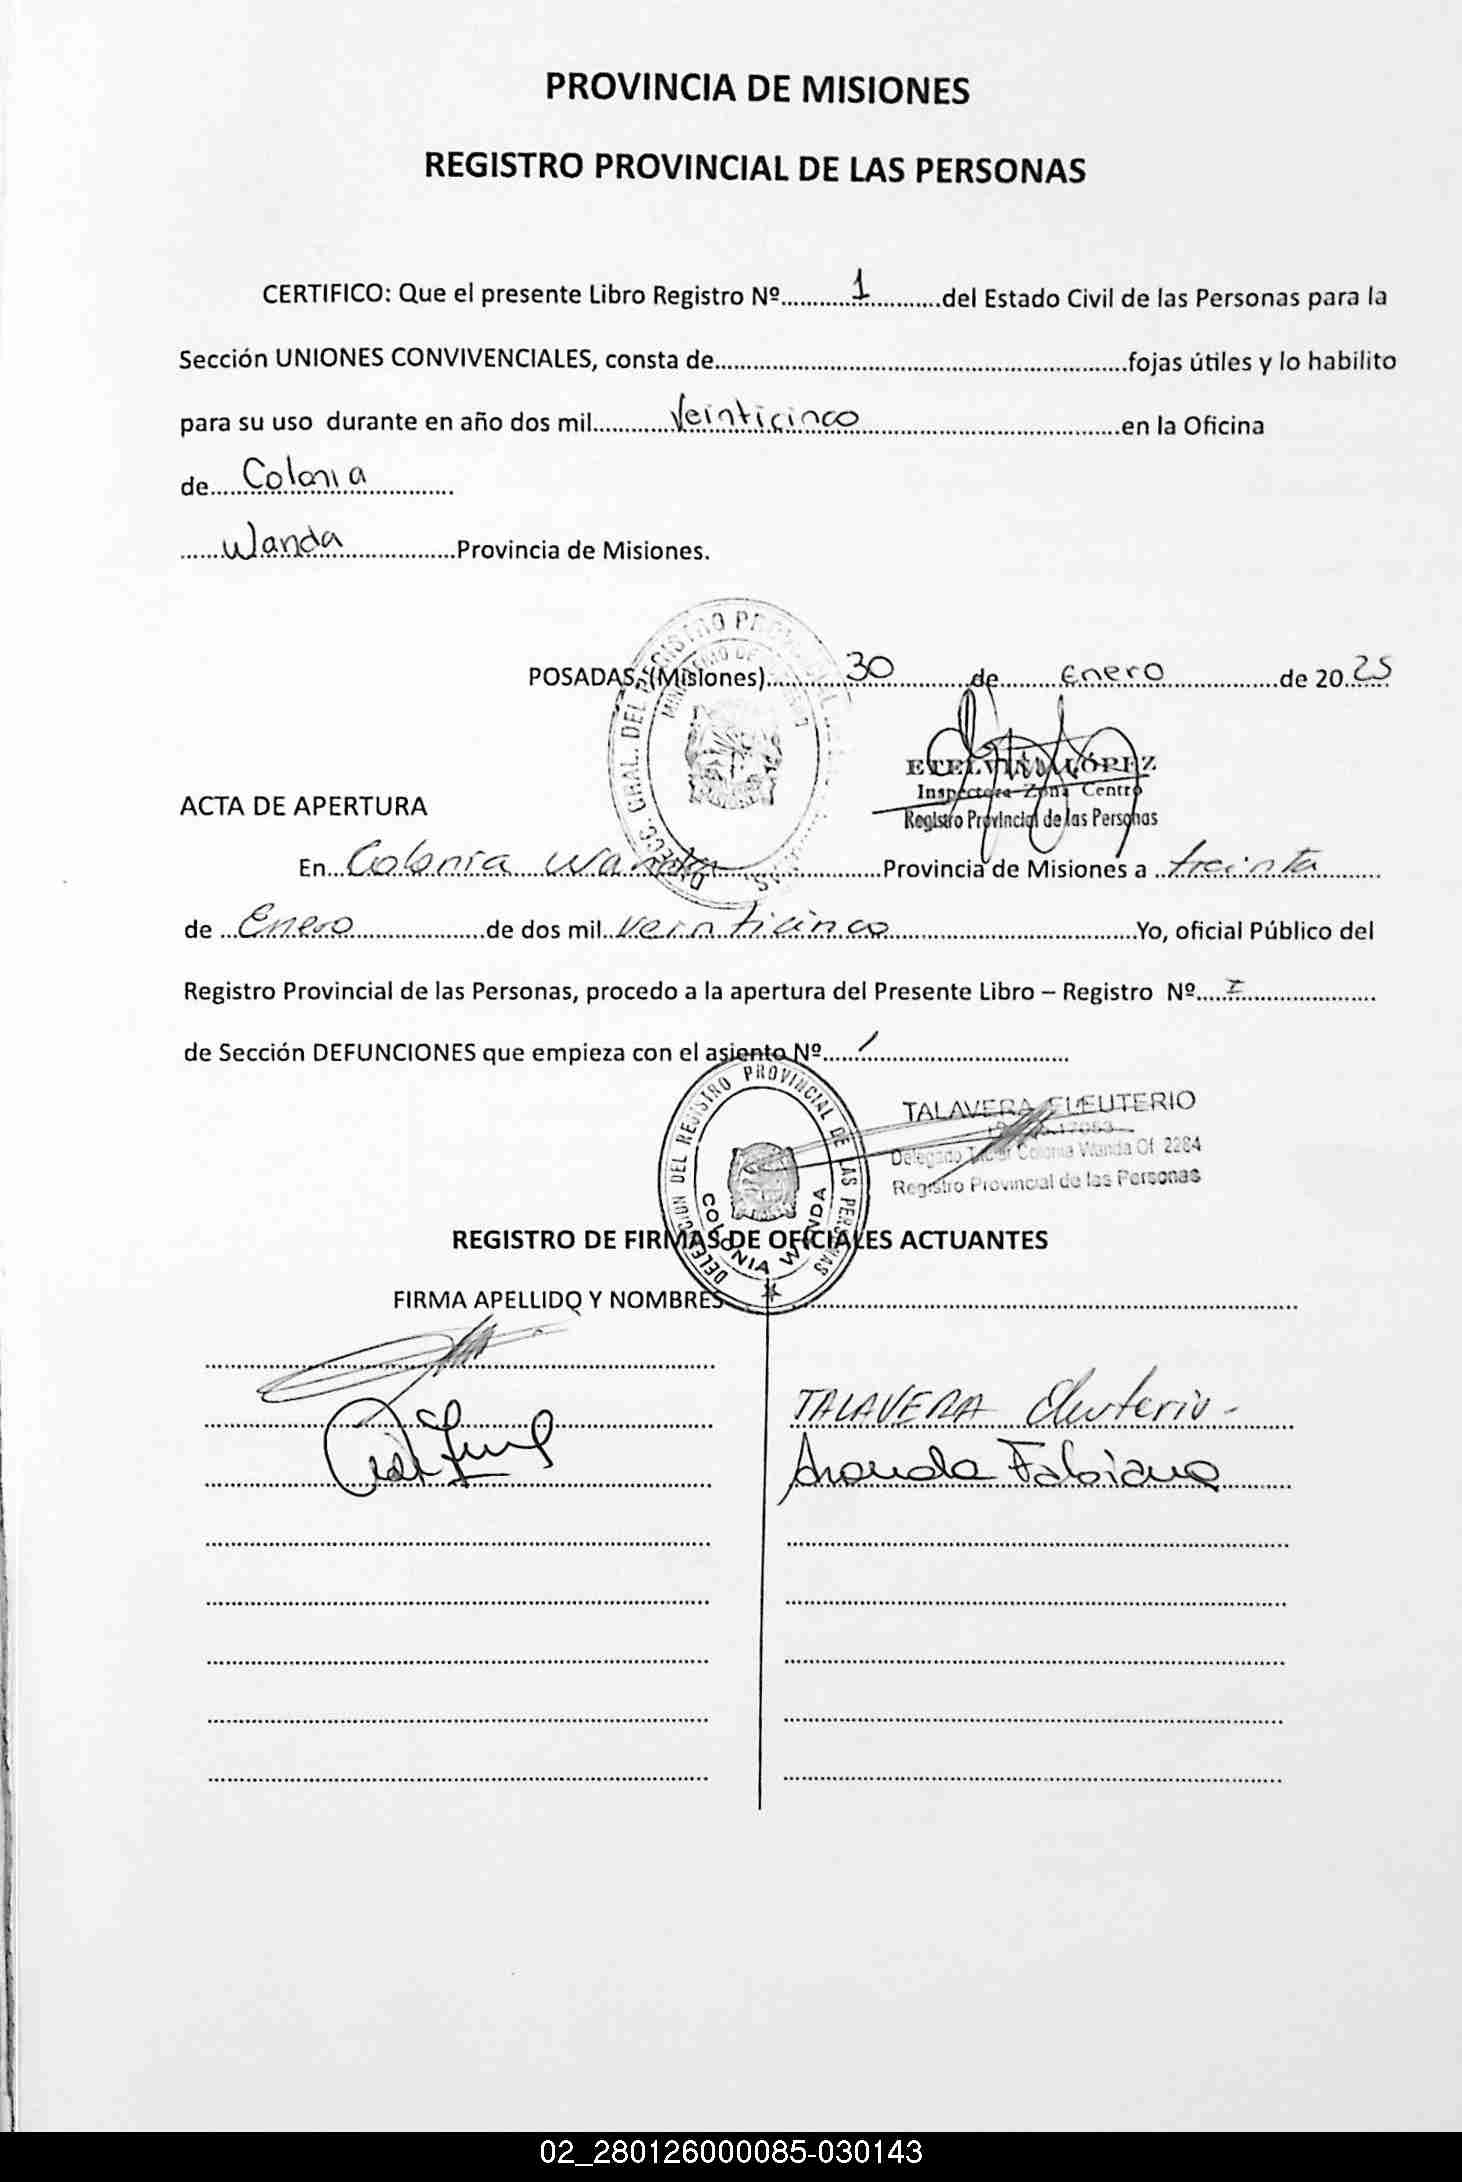 PROVINCIA DE MISIONES
REGISTRO PROVINCIAL DE LAS PERSONAS
CERTIFICO: Que el presente Libro Registro Nº.............1............del Estado Civil de las Personas para la
Sección UNIONES CONVIVENCIALES, consta de..................................................................fojas útiles y lo habilito
para su uso durante en año dos mil............Veinticinco..........................................en la Oficina
de.....Colonia..............
......Wanda..................Provincia de Misiones.
POSADAS,(Misiones).............30.............de.........Enero..................de 20.25
ETELVINA LÓPEZ
Inspectora Zona Centro
Registro Provincial de las Personas
ACTA DE APERTURA
En...Colonia Wanda..........................Provincia de Misiones a ..treinta..........
de ...Enero.....................de dos mil..veinticinco........................................Yo, oficial Público del
Registro Provincial de las Personas, procedo a la apertura del Presente Libro – Registro Nº.....I......................
de Sección DEFUNCIONES que empieza con el asiento Nº......1...............................
DELEGACION DEL REGISTRO PROVINCIAL DE LAS PERSONAS
COLONIA WANDA
TALAVERA ELEUTERIO
Delegado Titular Colonia Wanda Of. 2284
Registro Provincial de las Personas
REGISTRO DE FIRMAS DE OFICIALES ACTUANTES
FIRMA APELLIDO Y NOMBRES
TALAVERA Eleuterio -
Aranda Fabiana
02_280126000085-030143